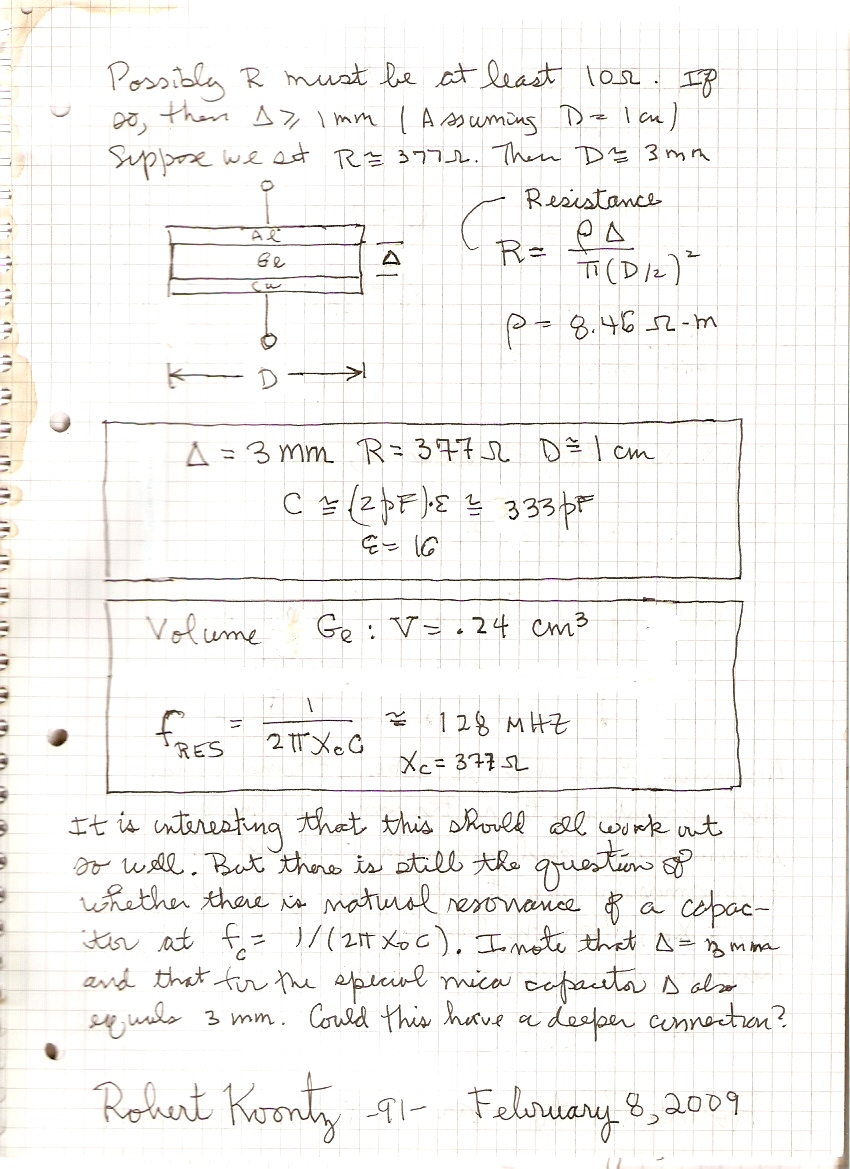 Possibly R must be at least 10Ω. If
so, then Δ ⩾ 1mm (Assuming D = 1 cm)
Suppose we set R ≅ 377Ω. Then D ≅ 3mm
Resistance
Al
Ge
Cu
Δ
R = ρΔ / π(D/2)²
ρ = 8.46 Ω-m
D
Δ = 3mm R = 377Ω D ≅ 1 cm
C ≅ (2pF)·ε ≅ 333pF
ε = 16
Volume Ge : V = .24 cm³
f_RES = 1 / 2πX_cC ≅ 128 MHZ
X_c = 377Ω
It is interesting that this should all work out
so well. But there is still the question of
whether there is natural resonance of a capac-
itor at f_c = 1/(2πX₀C). I note that Δ = 3mm
and that for the special mica capacitor Δ also
equals 3 mm. Could this have a deeper connection?
Robert Koontz -91- February 8, 2009